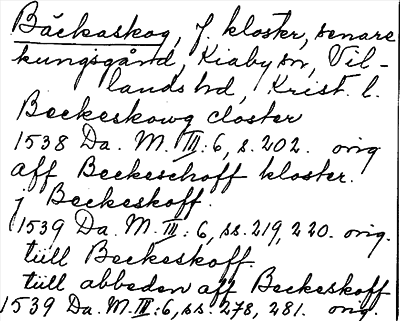 Bäckaskog, f. kloster, senare
kungsgård, Kiaby sn, Vil-
lands hd, Krist. l.
Beckeskowg closter
1538 Da. M. III: 6, s. 202. orig
aff Beckeschoff kloster.
j Beckeskoff.
1539 Da. M. III: 6, ss. 219, 220. orig.
tüll Beckeskoff.
tüll abbeden aff Beckeskoff
1539 Da. M. III: 6, ss. 278, 281. orig.